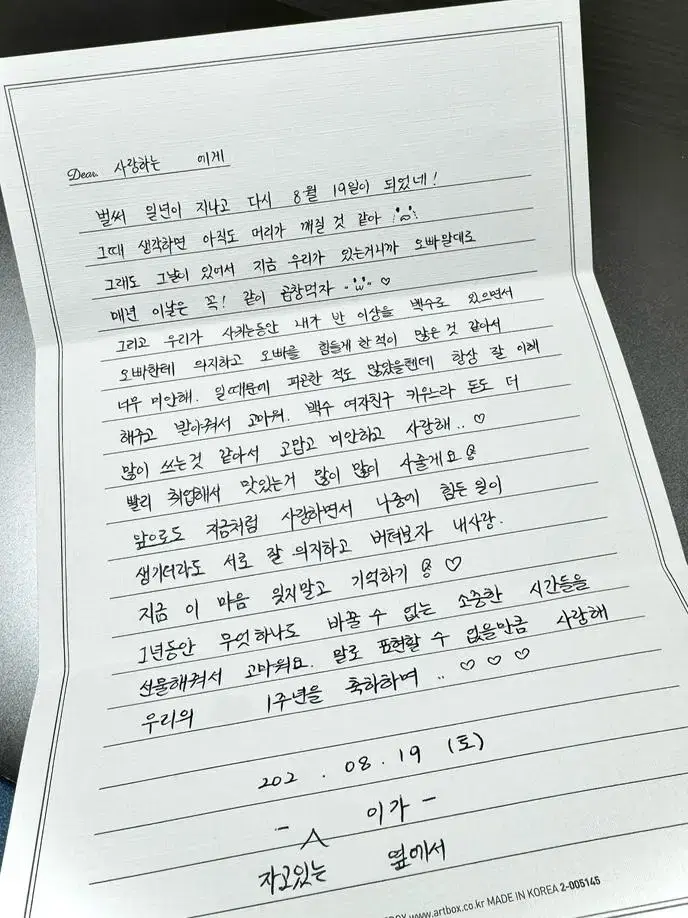 Dear. 사랑하는 에게
벌써 일년이 지나고 다시 8월 19일이 되었네!
그때 생각하면 아직도 머리가 깨질 것 같아
그래도 그날이 있어서 지금 우리가 있는거니까 오빠말대로
매년 이날은 꼭! 같이 곱창먹자 ♡
그리고 우리가 사귀는동안 내가 반 이상을 백수로 있으면서
오빠한테 의지하고 오빠를 힘들게 한 적이 많은 것 같아서
너무 미안해. 일때문에 피곤한 적도 많았을텐데 항상 잘 이해
해주고 받아줘서 고마워. 백수 여자친구 키우느라 돈도 더
많이 쓰는것 같아서 고맙고 미안하고 사랑해.. ♡
빨리 취업해서 맛있는거 많이 많이 사줄게요
앞으로도 지금처럼 사랑하면서 나중에 힘든 일이
생기더라도 서로 잘 의지하고 버텨보자 내사랑.
지금 이 마음 잊지말고 기억하기 ♡
1년동안 무엇하나도 바꿀 수 없는 소중한 시간들을
선물해줘서 고마워요. 말로 표현할 수 없을만큼 사랑해
우리의 1주년을 축하하며 .. ♡ ♡ ♡
202 . 08 . 19 (토)
- 이가 -
자고있는 옆에서
www.artbox.co.kr MADE IN KOREA 2-005145